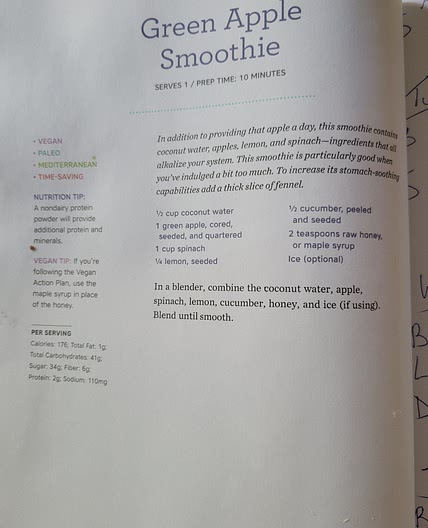 Green Apple
Smoothie
SERVES 1 / PREP TIME: 10 MINUTES
• VEGAN
• PALEO
• MEDITERRANEAN
• TIME-SAVING
NUTRITION TIP:
A nondairy protein
powder will provide
additional protein and
minerals.
VEGAN TIP: If you're
following the Vegan
Action Plan, use the
maple syrup in place
of the honey.
PER SERVING
Calories: 176; Total Fat: 1g;
Total Carbohydrates: 41g;
Sugar: 34g; Fiber: 6g;
Protein: 2g; Sodium: 110mg
In addition to providing that apple a day, this smoothie contains
coconut water, apples, lemon, and spinach—ingredients that all
alkalize your system. This smoothie is particularly good when
you've indulged a bit too much. To increase its stomach-soothing
capabilities add a thick slice of fennel.
½ cup coconut water
1 green apple, cored,
seeded, and quartered
1 cup spinach
¼ lemon, seeded
½ cucumber, peeled
and seeded
2 teaspoons raw honey,
or maple syrup
Ice (optional)
In a blender, combine the coconut water, apple,
spinach, lemon, cucumber, honey, and ice (if using).
Blend until smooth.